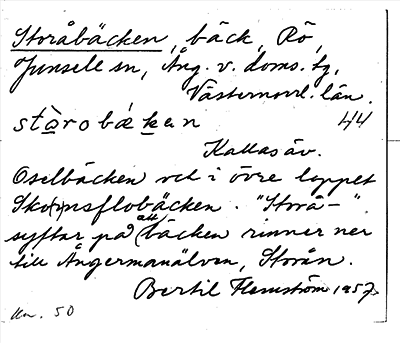 Storåbäcken, bäck, Rö,
Junsele sn, Ång. v. doms. tg,
Västernorrl. län.
stàrobækan 44
Kallas äv.
Oselbäcken och i övre loppet
Sko(r)nsflobäcken. "Storå-"
syftar på att bäcken rinner ner
till Ångermanälven, Storån.
Bertil Flemström 1957
Un. 50